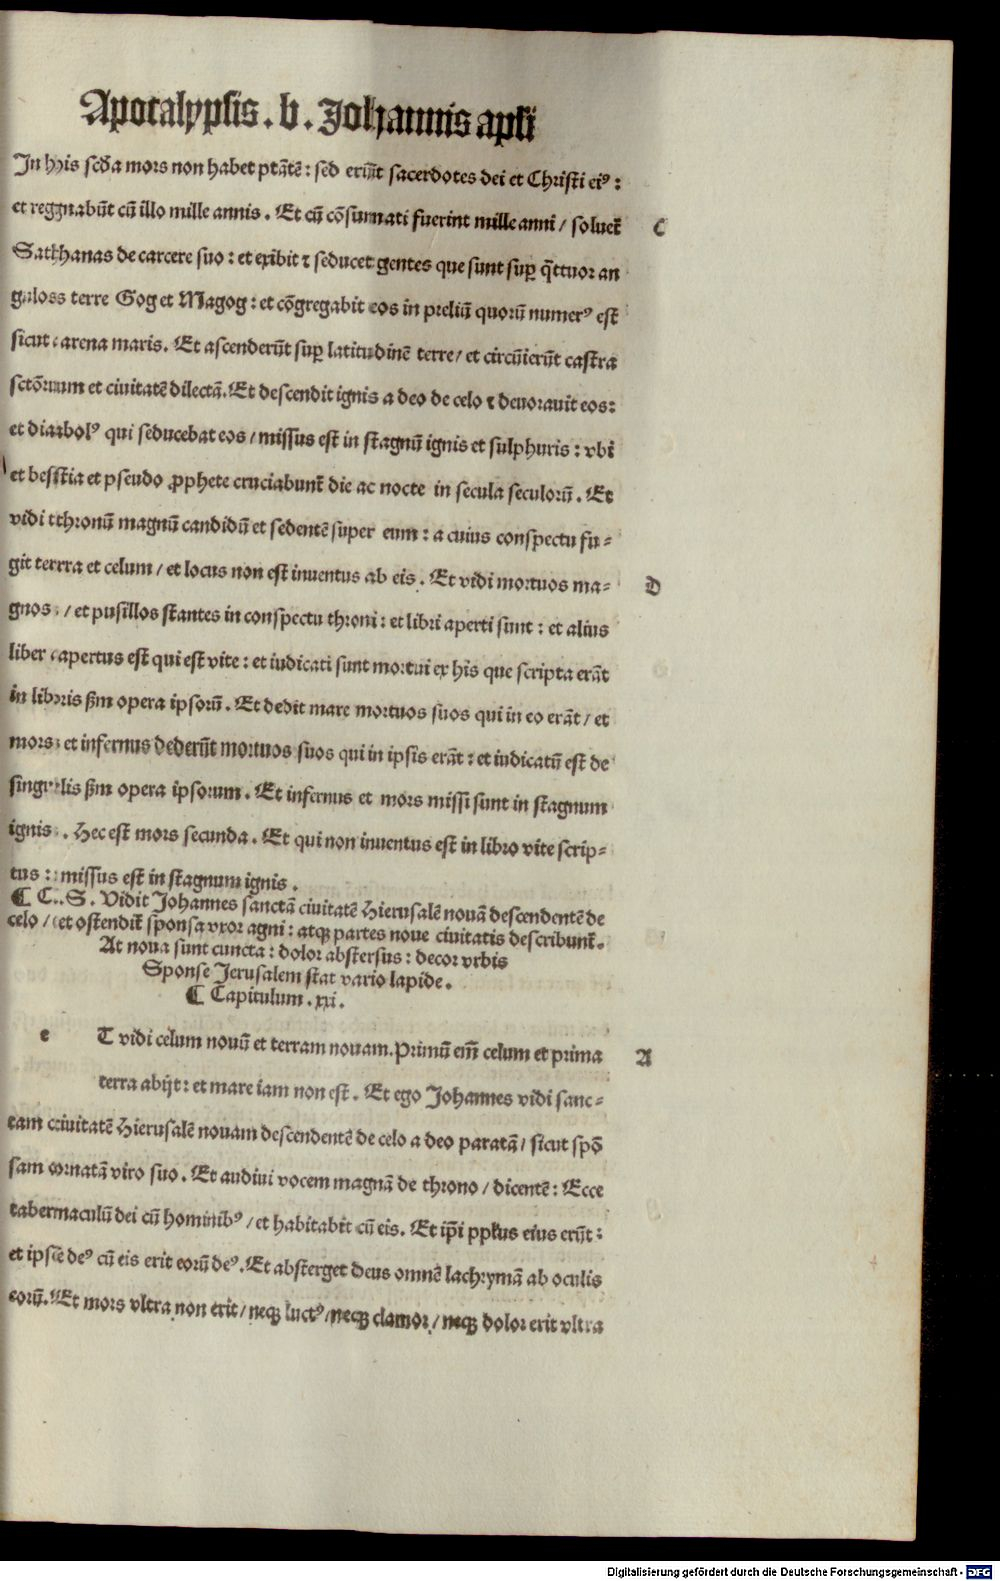 Apocalypsis . b . Johannis apľi
In his scďa mors non habet ptātē : sed erūt sacerdotes dei et Christi eiꝰ :
et regnabūt cū illo mille annis . Et cū cōsumati fuerint mille anni / soluet̄
C
Sathanas de carcere suo : et exibit ⁊ seducet gentes que sunt suꝑ q̄ttuor an
gulos terre Gog et Magog : et cōgregabit eos in preliū quorū numerꝰ est
sicut arena maris . Et ascenderūt suꝑ latitudinē terre / et circūierūt castra
sctōrum et ciuitatē dilectā . Et descendit ignis a deo de celo ⁊ deuorauit eos :
et diabolꝰ qui seducebat eos / missus est in stagnū ignis et sulphuris : vbi
et bestia et pseudo ꝓphete cruciabunt̄ die ac nocte in secula seculorū . Et
vidi thronū magnū candidū et sedentē super eum : a cuius conspectu fu⸗
git terra et celum / et locus non est inuentus ab eis . Et vidi mortuos ma⸗
D
gnos / et pusillos stantes in conspectu throni : et libri aperti sunt : et alius
liber apertus est qui est vite : et iudicati sunt mortui ex his que scripta erāt
in libris ẜm opera ipsorū . Et dedit mare mortuos suos qui in eo erāt / et
mors et infernus dederūt mortuos suos qui in ipsis erāt : et iudicatū est de
singulis ẜm opera ipsorum . Et infernus et mors missi sunt in stagnum
ignis . Hec est mors secunda . Et qui non inuentus est in libro vite scrip⸗
tus : missus est in stagnum ignis .
¶ C . S . Vidit Johannes sanctā ciuitatē Hierusalē nouā descendentē de
celo / et ostendit̄ sponsa vxor agni : atqꝫ partes noue ciuitatis describunt̄ .
At noua sunt cuncta : dolor abstersus : decor vrbis
Sponse Jerusalem stat vario lapide .
¶ Capitulum . xxi .
e T vidi celum nouū et terram nouam . Primū em̄ celum et prima
A
terra abijt : et mare iam non est . Et ego Johannes vidi sanc⸗
tam ciuitatē Hierusalē nouam descendentē de celo a deo paratā / sicut spō
sam ornatā viro suo . Et audiui vocem magnā de throno / dicentē : Ecce
tabernaculū dei cū hominibꝰ / et habitabit cū eis . Et ip̄i pplus eius erūt :
et ipse deꝰ cū eis erit eorū deꝰ . Et absterget deus omnē lachrymā ab oculis
eorū . Et mors vltra non erit / neqꝫ luctꝰ / neqꝫ clamor / neqꝫ dolor erit vltra
Digitalisierung gefördert durch die Deutsche Forschungsgemeinschaft - DFG